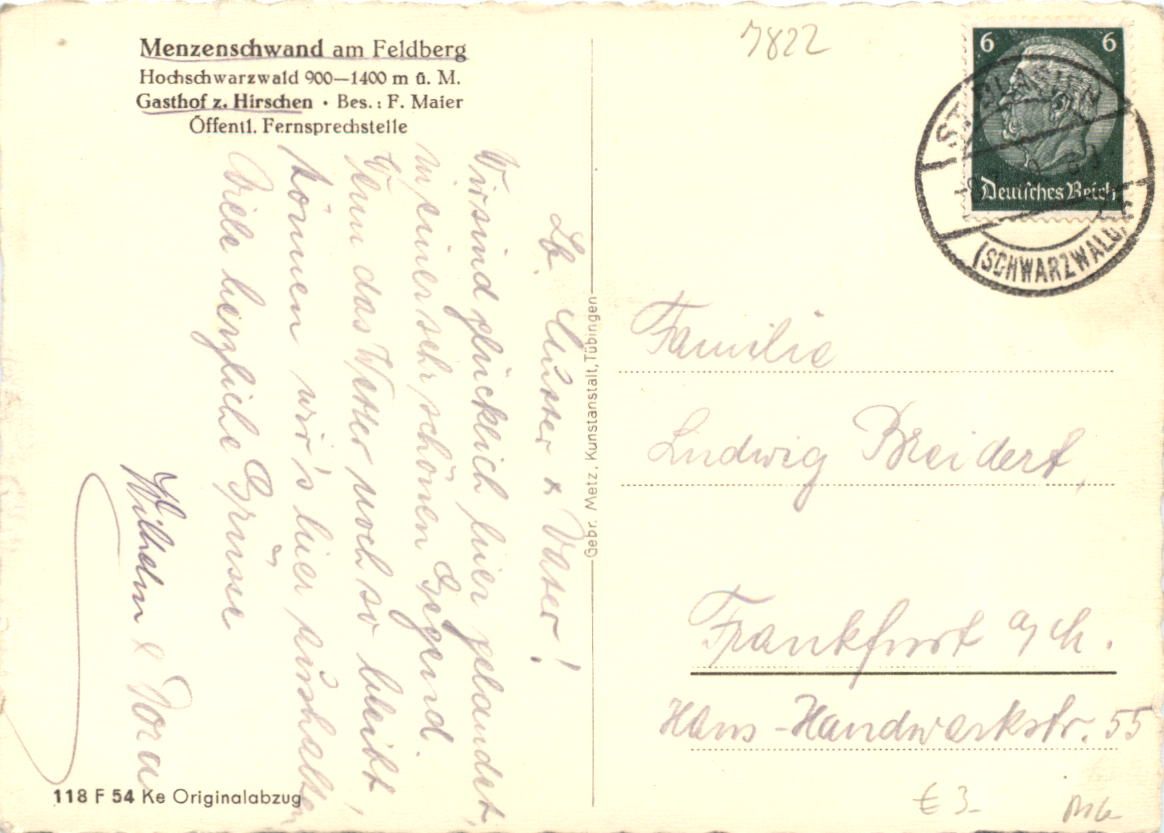 Menzenschwand am Feldberg
Hochschwarzwald 900—1400 m ü. M.
Gasthof z. Hirschen · Bes.: F. Maier
Öffentl. Fernsprechstelle
Lb. Mutter & Vater!
Wir sind glücklich hier gelandet,
in einer sehr schönen Gegend.
Wenn das Wetter noch so bleibt,
können wir's hier aushalten
Viele herzliche Grüsse
Wilhelm &
118 F 54 Ke Originalabzug
Gebr. Metz, Kunstanstalt, Tübingen
7822
6 6
Deutsches Reich
ST. BLASIEN
(SCHWARZWALD)
Familie
Ludwig Breidert,
Frankfurt
Hans-Handwerkstr. 55
€ 3-